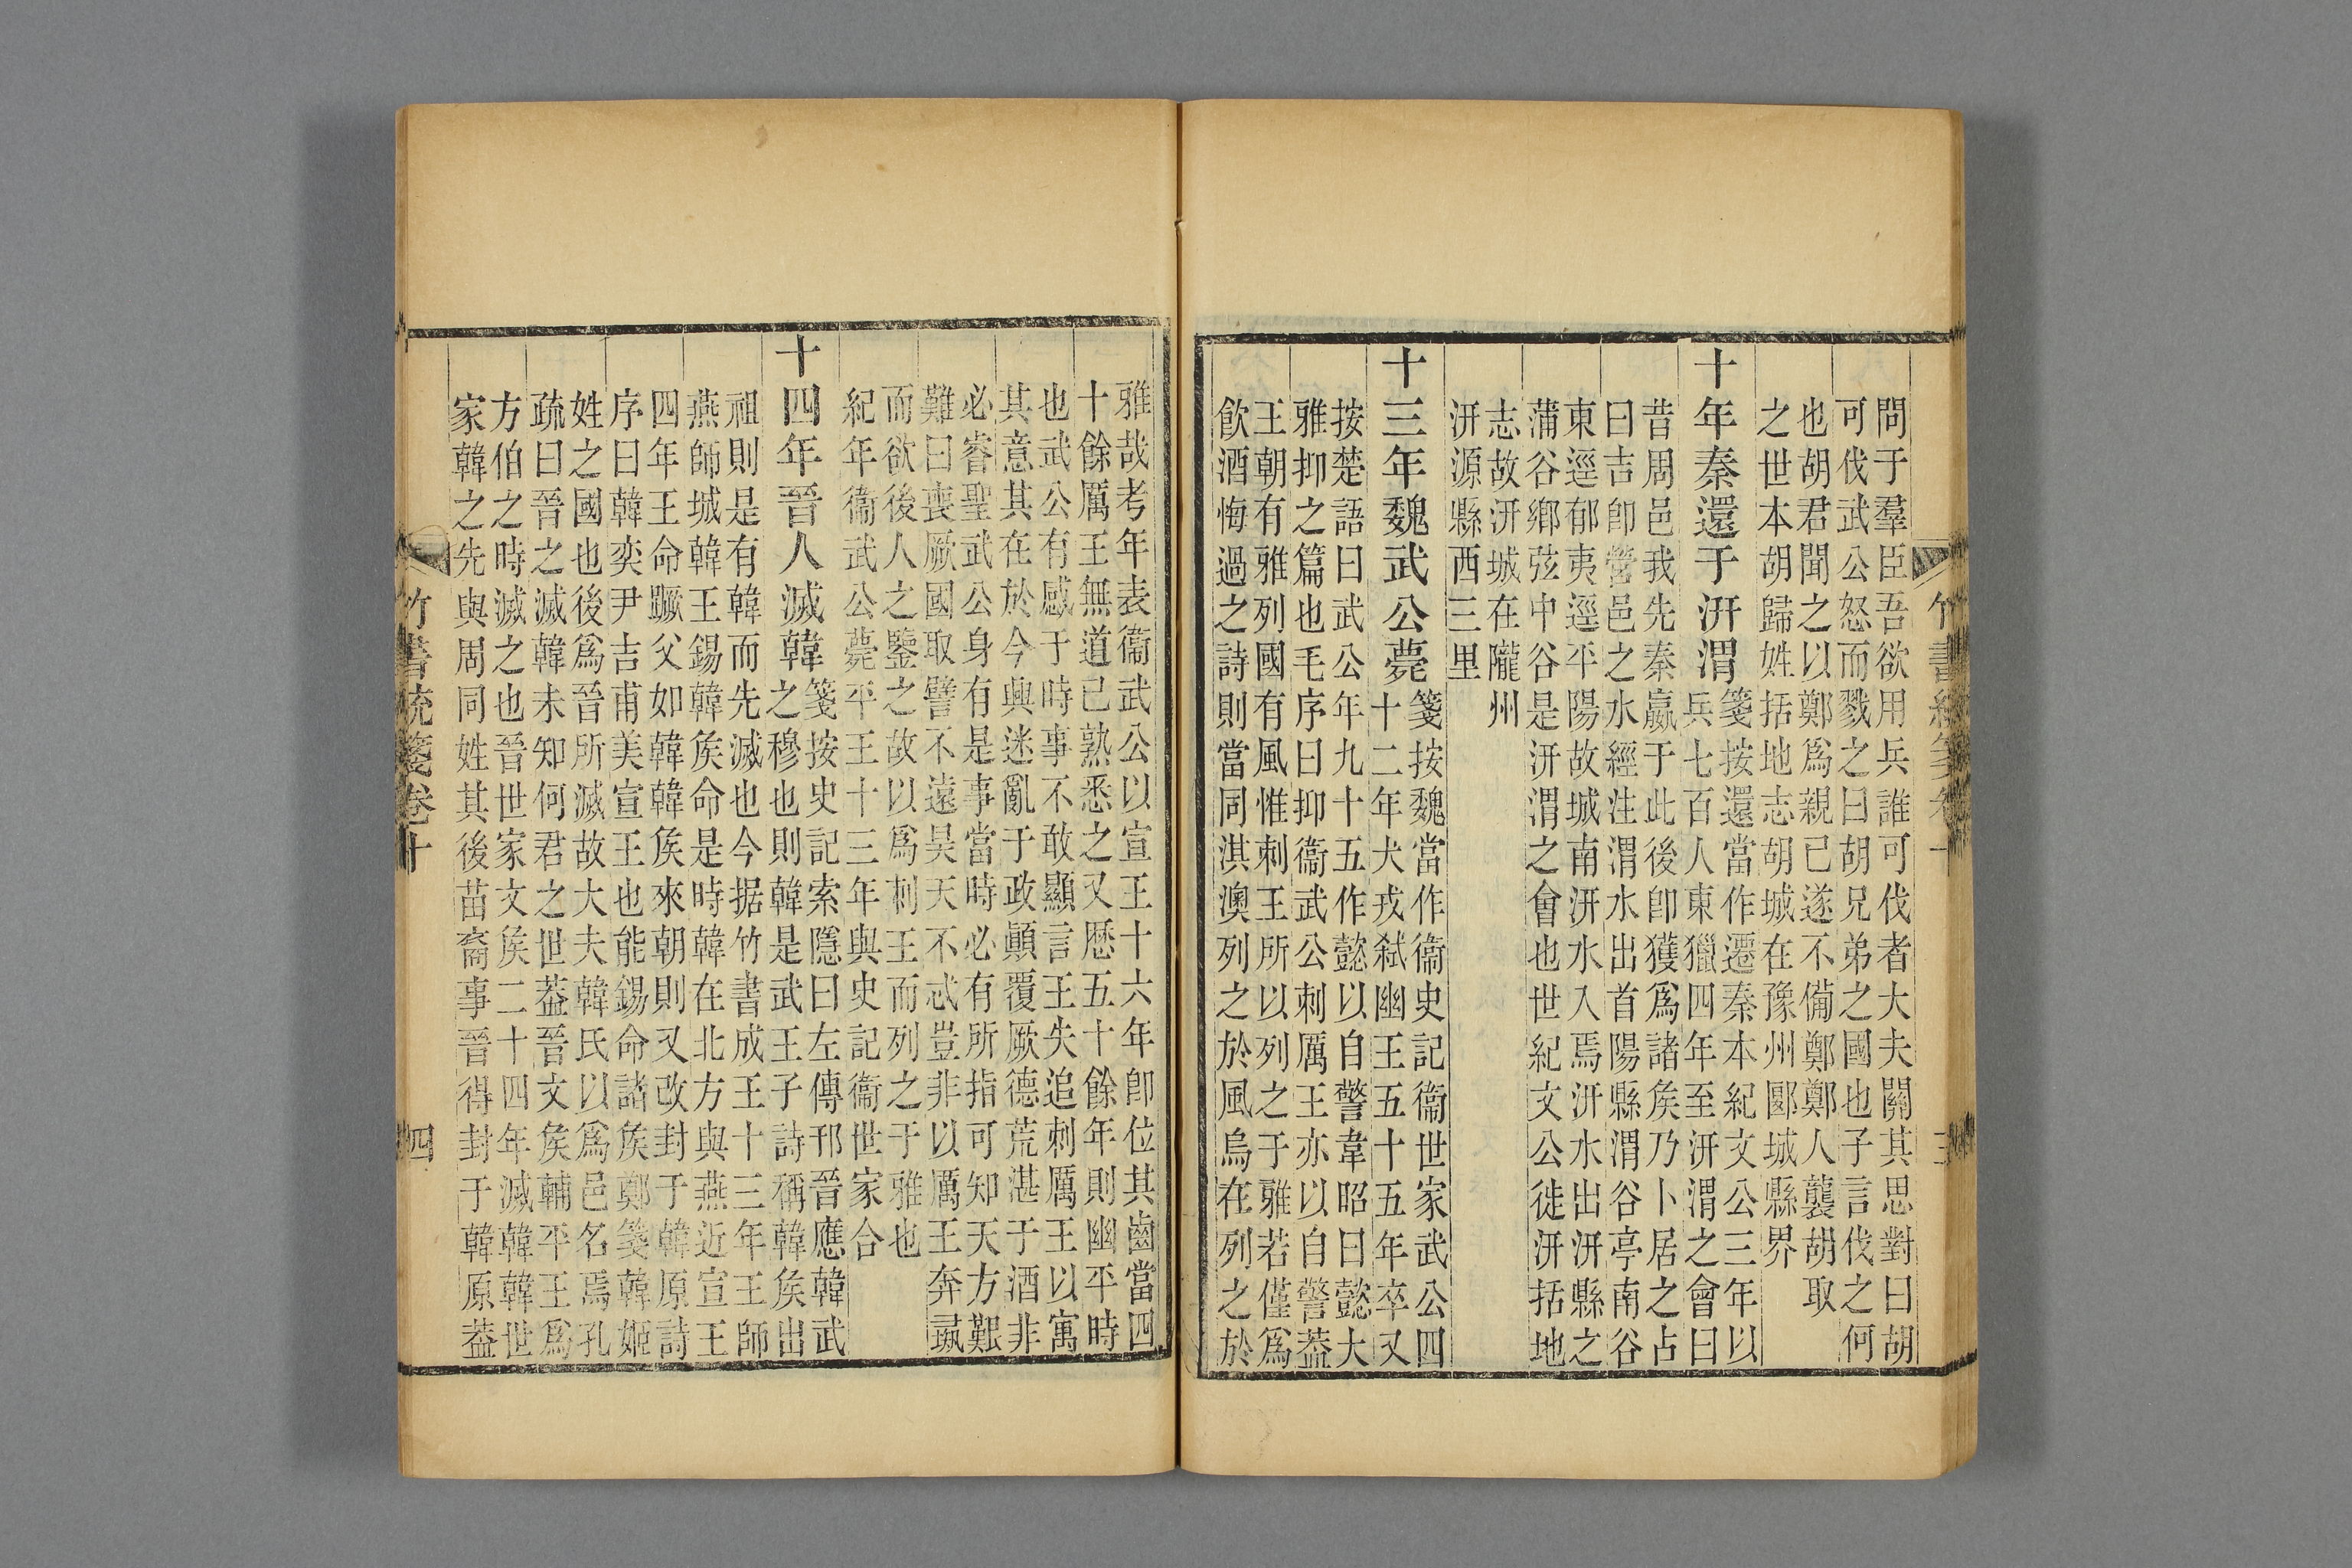 問于羣臣吾欲用兵誰可伐者大夫關其思對曰胡
可伐武公怒而戮之曰胡兄弟之國也子言伐之何
也胡君聞之以鄭爲親已遂不備鄭鄭人襲胡取
之世本胡歸姓括地志胡城在豫州郾城縣界
十年秦還于汧渭
箋按還當作遷秦本紀文公三年以
兵七百人東獵四年至汧渭之會曰
昔周邑我先秦嬴于此後卽獲爲諸矦乃卜居之占
曰吉卽營邑之水經注渭水出首陽縣渭谷亭南谷
東逕郁夷逕平陽故城南汧水入焉汧水出汧縣之
蒲谷鄉弦中谷是汧渭之會也世紀文公徙汧括地
志故汧城在隴州
汧源縣西三里
十三年魏武公薨
箋按魏當作衞史記衞世家武公四
十二年犬戎弑幽王五十五年卒又
按楚語曰武公年九十五作懿以自警韋昭曰懿大
雅抑之篇也毛序曰抑衞武公刺厲王亦以自警葢
王朝有雅列國有風惟刺王所以列之于雅若僅爲
飲酒悔過之詩則當同淇澳列之於風烏在列之於
雅哉考年表衞武公以宣王十六年卽位其齒當四
十餘厲王無道已熟悉之又歷五十餘年則幽平時
也武公有感于時事不敢顯言王失追刺厲王以寓
其意其在於今興迷亂于政顚覆厥德荒湛于酒非
必睿聖武公身有是事當時必有所指可知天方艱
難曰喪厥國取譬不遠昊天不忒豈非以厲王奔彘
而欲後人之鑒之故以爲刺王而列之于雅也
紀年衞武公薨平王十三年與史記衞世家合
十四年晉人滅韓
箋按史記索隱曰左傳邗晉應韓武
之穆也則韓是武王子詩稱韓矦出
祖則是有韓而先滅也今据竹書成王十三年王師
燕師城韓王錫韓矦命是時韓在北方與燕近宣王
四年王命蹶父如韓韓矦來朝則又改封于韓原詩
序曰韓奕尹吉甫美宣王也能錫命諸矦鄭箋韓姬
姓之國也後爲晉所滅故大夫韓氏以爲邑名焉孔
疏曰晉之滅韓未知何君之世葢晉文矦輔平王爲
方伯之時滅之也晉世家文矦二十四年滅韓韓世
家韓之先與周同姓其後苗裔事晉得封于韓原葢
竹書統箋卷十
四